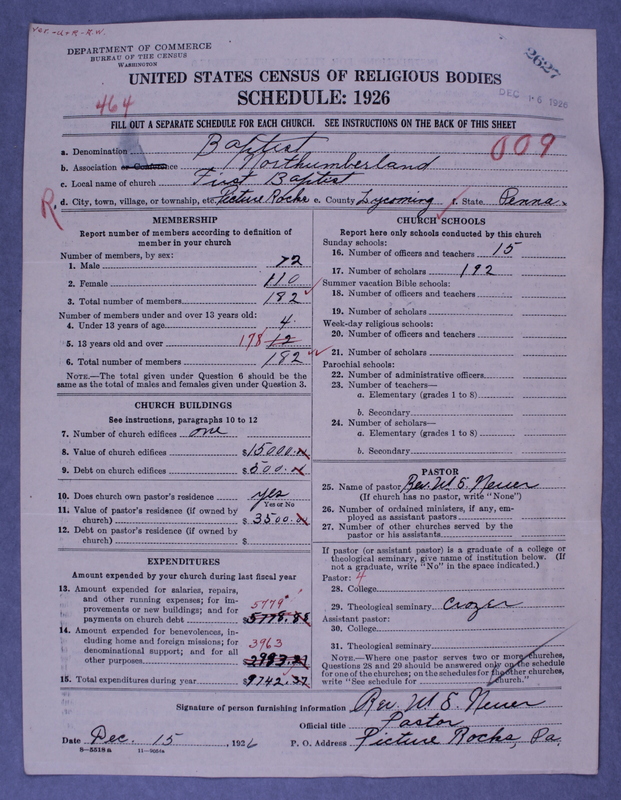 Ver. - U + R - R.W.
DEPARTMENT OF COMMERCE
BUREAU OF THE CENSUS
WASHINGTON
2627
UNITED STATES CENSUS OF RELIGIOUS BODIES
DEC 16 1926
SCHEDULE: 1926
464
FILL OUT A SEPARATE SCHEDULE FOR EACH CHURCH. SEE INSTRUCTIONS ON THE BACK OF THIS SHEET
a. Denomination Baptist
009
b. Association or Conference Northumberland
c. Local name of church First Baptist
R d. City, town, village, or township, etc. Picture Rocks e. County Lycoming f. State Penna.
MEMBERSHIP
Report number of members according to definition of member in your church
Number of members, by sex:
1. Male 72
2. Female 110
3. Total number of members 182
Number of members under and over 13 years old:
4. Under 13 years of age 4
5. 13 years old and over 178 12
6. Total number of members 182
NOTE.—The total given under Question 6 should be
same as the total of males and females given under Question 3.
CHURCH BUILDINGS
See instructions, paragraphs 10 to 12
7. Number of church edifices one
8. Value of church edifices $15000.
9. Debt on church edifices $500.
10. Does church own pastor's residence yes
Yes or No
11. Value of pastor's residence (if owned by
church) $3500.
12. Debt on pastor's residence (if owned by
church) $
EXPENDITURES
Amount expended by your church during last fiscal year
13. Amount expended for salaries, repairs,
and other running expenses; for im-
provements or new buildings; and for 5779
payments on church debt $5778.85
14. Amount expended for benevolences, in-
cluding home and foreign missions; for
denominational support; and for all 3963
other purposes
15. Total expenditures during year $9742.37
CHURCH SCHOOLS
Report here only schools conducted by this church
Sunday schools:
16. Number of officers and teachers 15
17. Number of scholars 192
Summer vacation Bible schools:
18. Number of officers and teachers
19. Number of scholars
Week-day religious schools:
20. Number of officers and teachers
21. Number of scholars
Parochial schools:
22. Number of administrative officers
23. Number of teachers—
a. Elementary (grades 1 to 8)
b. Secondary
24. Number of scholars—
a. Elementary (grades 1 to 8)
b. Secondary
PASTOR
25. Name of pastor Rev. W. S. Neuer
(If church has no pastor, write "None")
26. Number of ordained ministers, if any, em-
ployed as assistant pastors
27. Number of other churches served by the
pastor or his assistants
If pastor (or assistant pastor) is a graduate of a college or
theological seminary, give name of institution below. (If
not a graduate, write "No" in the space indicated.)
Pastor: 4
28. College
29. Theological seminary Crozer
Assistant pastor:
30. College
31. Theological seminary
NOTE.—Where one pastor serves two or more churches,
Questions 28 and 29 should be answered only on the schedule
for one of the churches; on the schedules for the other churches,
write "See schedule for church."
Signature of person furnishing information Rev. W. S. Neuer
Official title Pastor
Date Dec. 15, 1926 P. O. Address Picture Rocks, Pa.
8-5518a